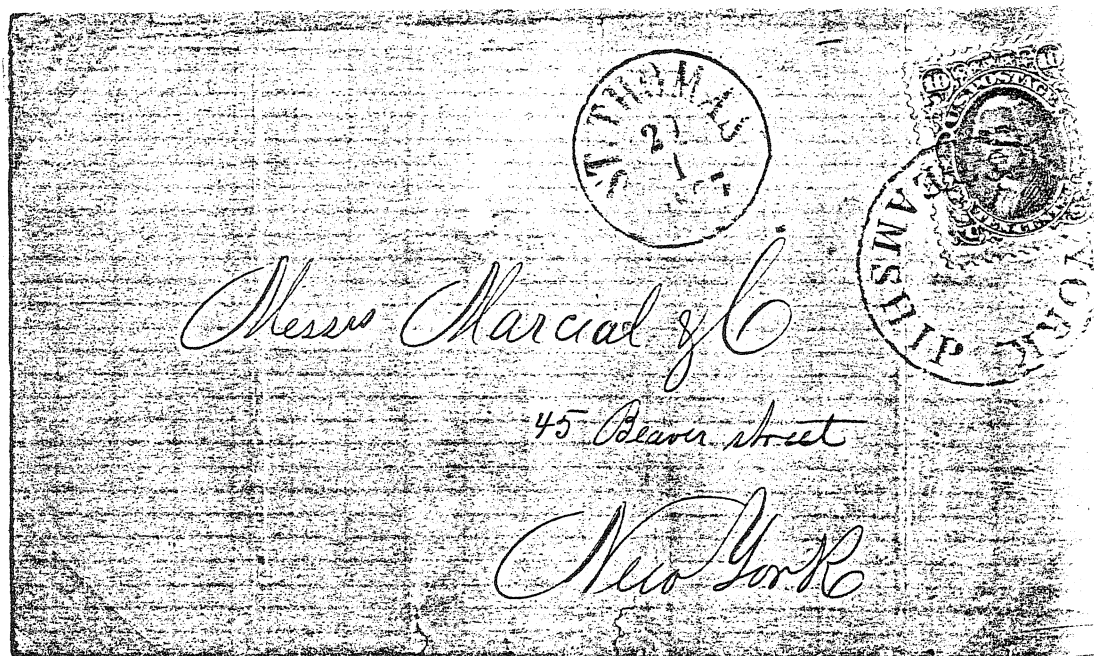 ST. THOMAS
1
10 10
U.S. POSTAGE
YORK STEAMSHIP
Messrs Marcial & C
45 Beaver street
New York